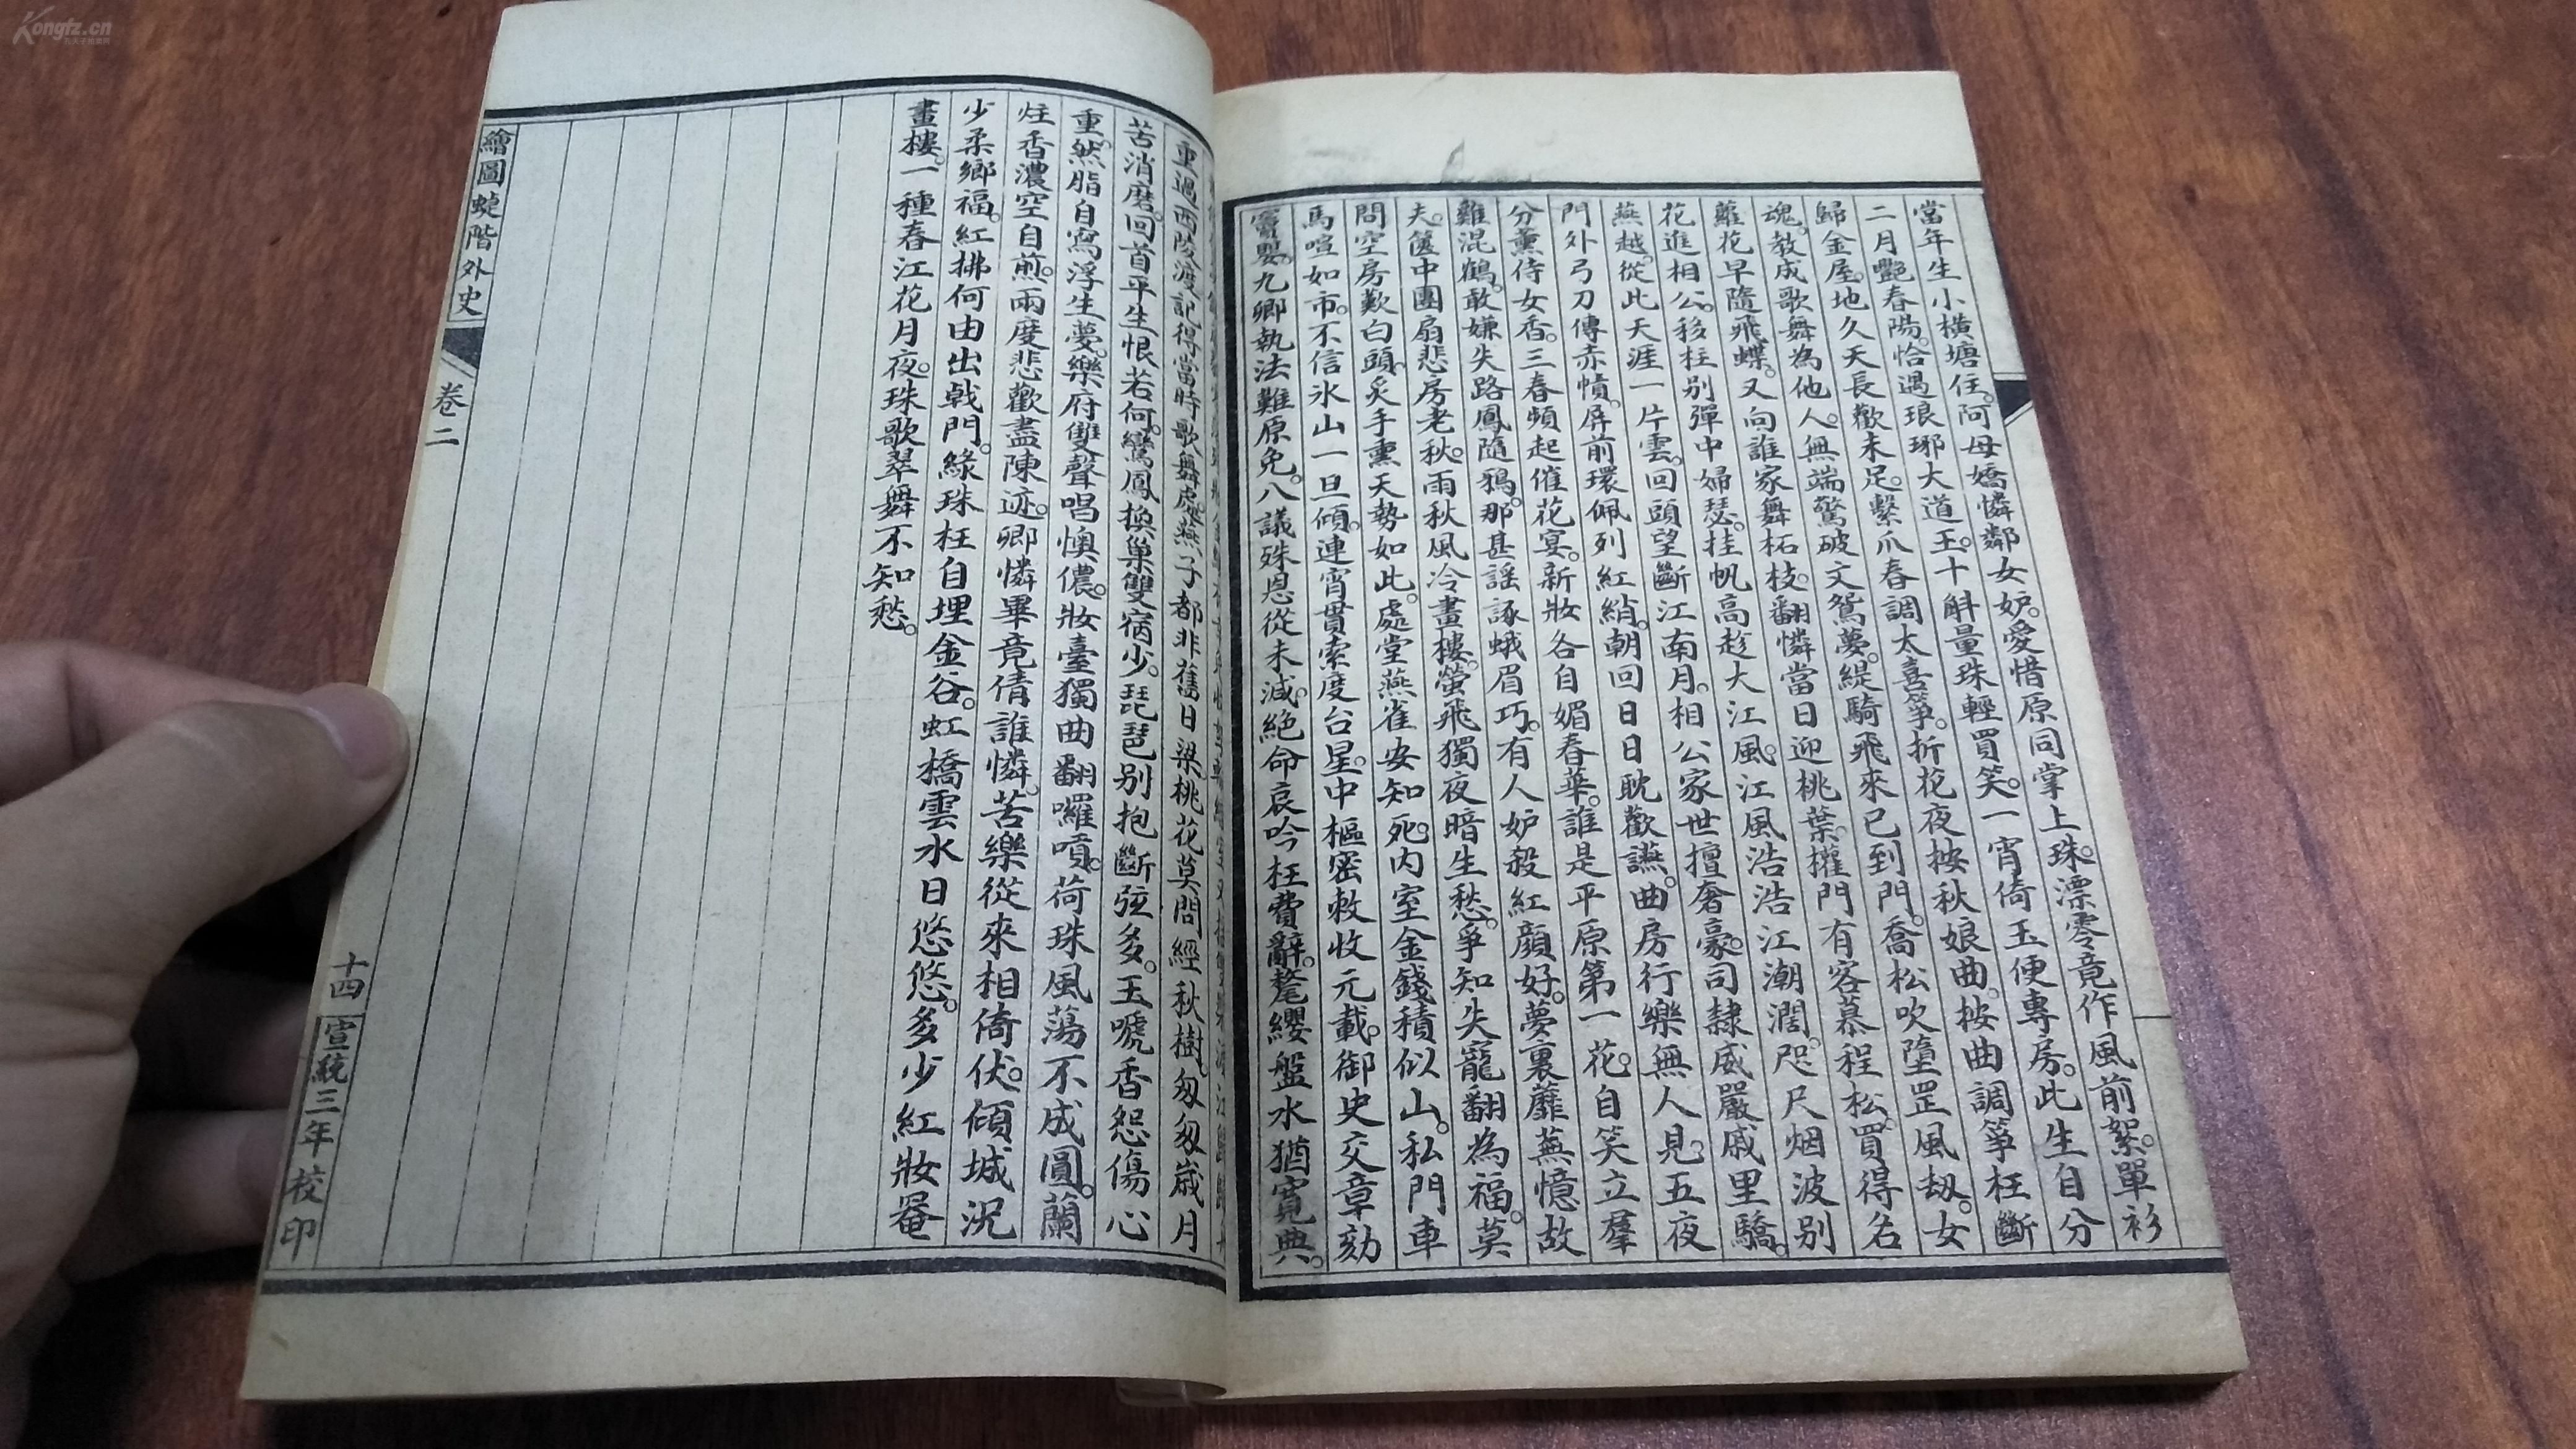 當年生小橫塘住。阿母嬌憐鄰女妒。愛惜原同掌上珠。漂零竟作風前絮。單衫
二月艷春陽。恰遇琅琊大道王。十斛量珠輕買笑。一宵倚玉便專房。此生自分
歸金屋。地久天長歡未足。繫爪春調太喜箏。折花夜按秋娘曲。按曲調箏枉斷
魂。教成歌舞為他人。無端驚破文鴛夢。緹騎飛來已到門。喬松吹墮罡風劫。女
蘿花早隨飛蝶。又向誰家舞柘枝。翻憐當日迎桃葉。權門有客慕程松。買得名
花進相公。移柱別彈中婦瑟。挂帆高趁大江風。江風浩浩江潮濶。咫尺烟波别
燕越。從此天涯一片雲。回頭望斷江南月。相公家世擅奢豪。司隸威嚴戚里驕。
門外弓刀傳赤幘。屏前環佩列紅綃。朝回日日耽歡讌。曲房行樂無人見。五夜
分薰侍女香。三春頻起催花宴。新妝各自媚春華。誰是平原第一花。自笑立羣
雞混鶴。敢嫌失路鳳隨鴉。那甚謡諑蛾眉巧。有人妒殺紅顏好。夢裏蘼蕪憶故
夫。篋中團扇悲房老。秋雨秋風冷畫樓。螢飛獨夜暗生愁。爭知失寵翻為福。莫
問空房歎白頭。炙手熏天勢如此。處堂燕雀安知死。内室金錢積似山。私門車
馬喧如市。不信氷山一旦傾。連宵貫索度台星。中樞密敕收元載。御史交章劾
竇嬰。九卿執法難原免。八議殊恩從未減。絕命哀吟枉費辭。氂纓盤水猶寬典。
重過西陵渡。記得當時歌舞處。燕子都非舊日梁。桃花莫問經秋樹。匆匆歲月
苦消磨。回首平生恨若何。鸞鳳換巢雙宿少。琵琶别抱斷弦多。玉唬香怨傷心
重。然脂自寫浮生夢。樂府雙聲唱懊儂。妝臺獨曲翻囉嗊。荷珠風蕩不成圓。蘭
炷香濃空自煎。兩度悲歡盡陳迹。卿憐畢竟倩誰憐。苦樂從來相倚伏。傾城況
少柔鄉福。紅拂何由出戟門。綠珠枉自埋金谷。虹橋雲水日悠悠。多少紅妝罨
畫樓。一種春江花月夜。珠歌翠舞不知愁。
繪圖蜨階外史
卷二
十四
宣統三年校印
Kongfz.cn